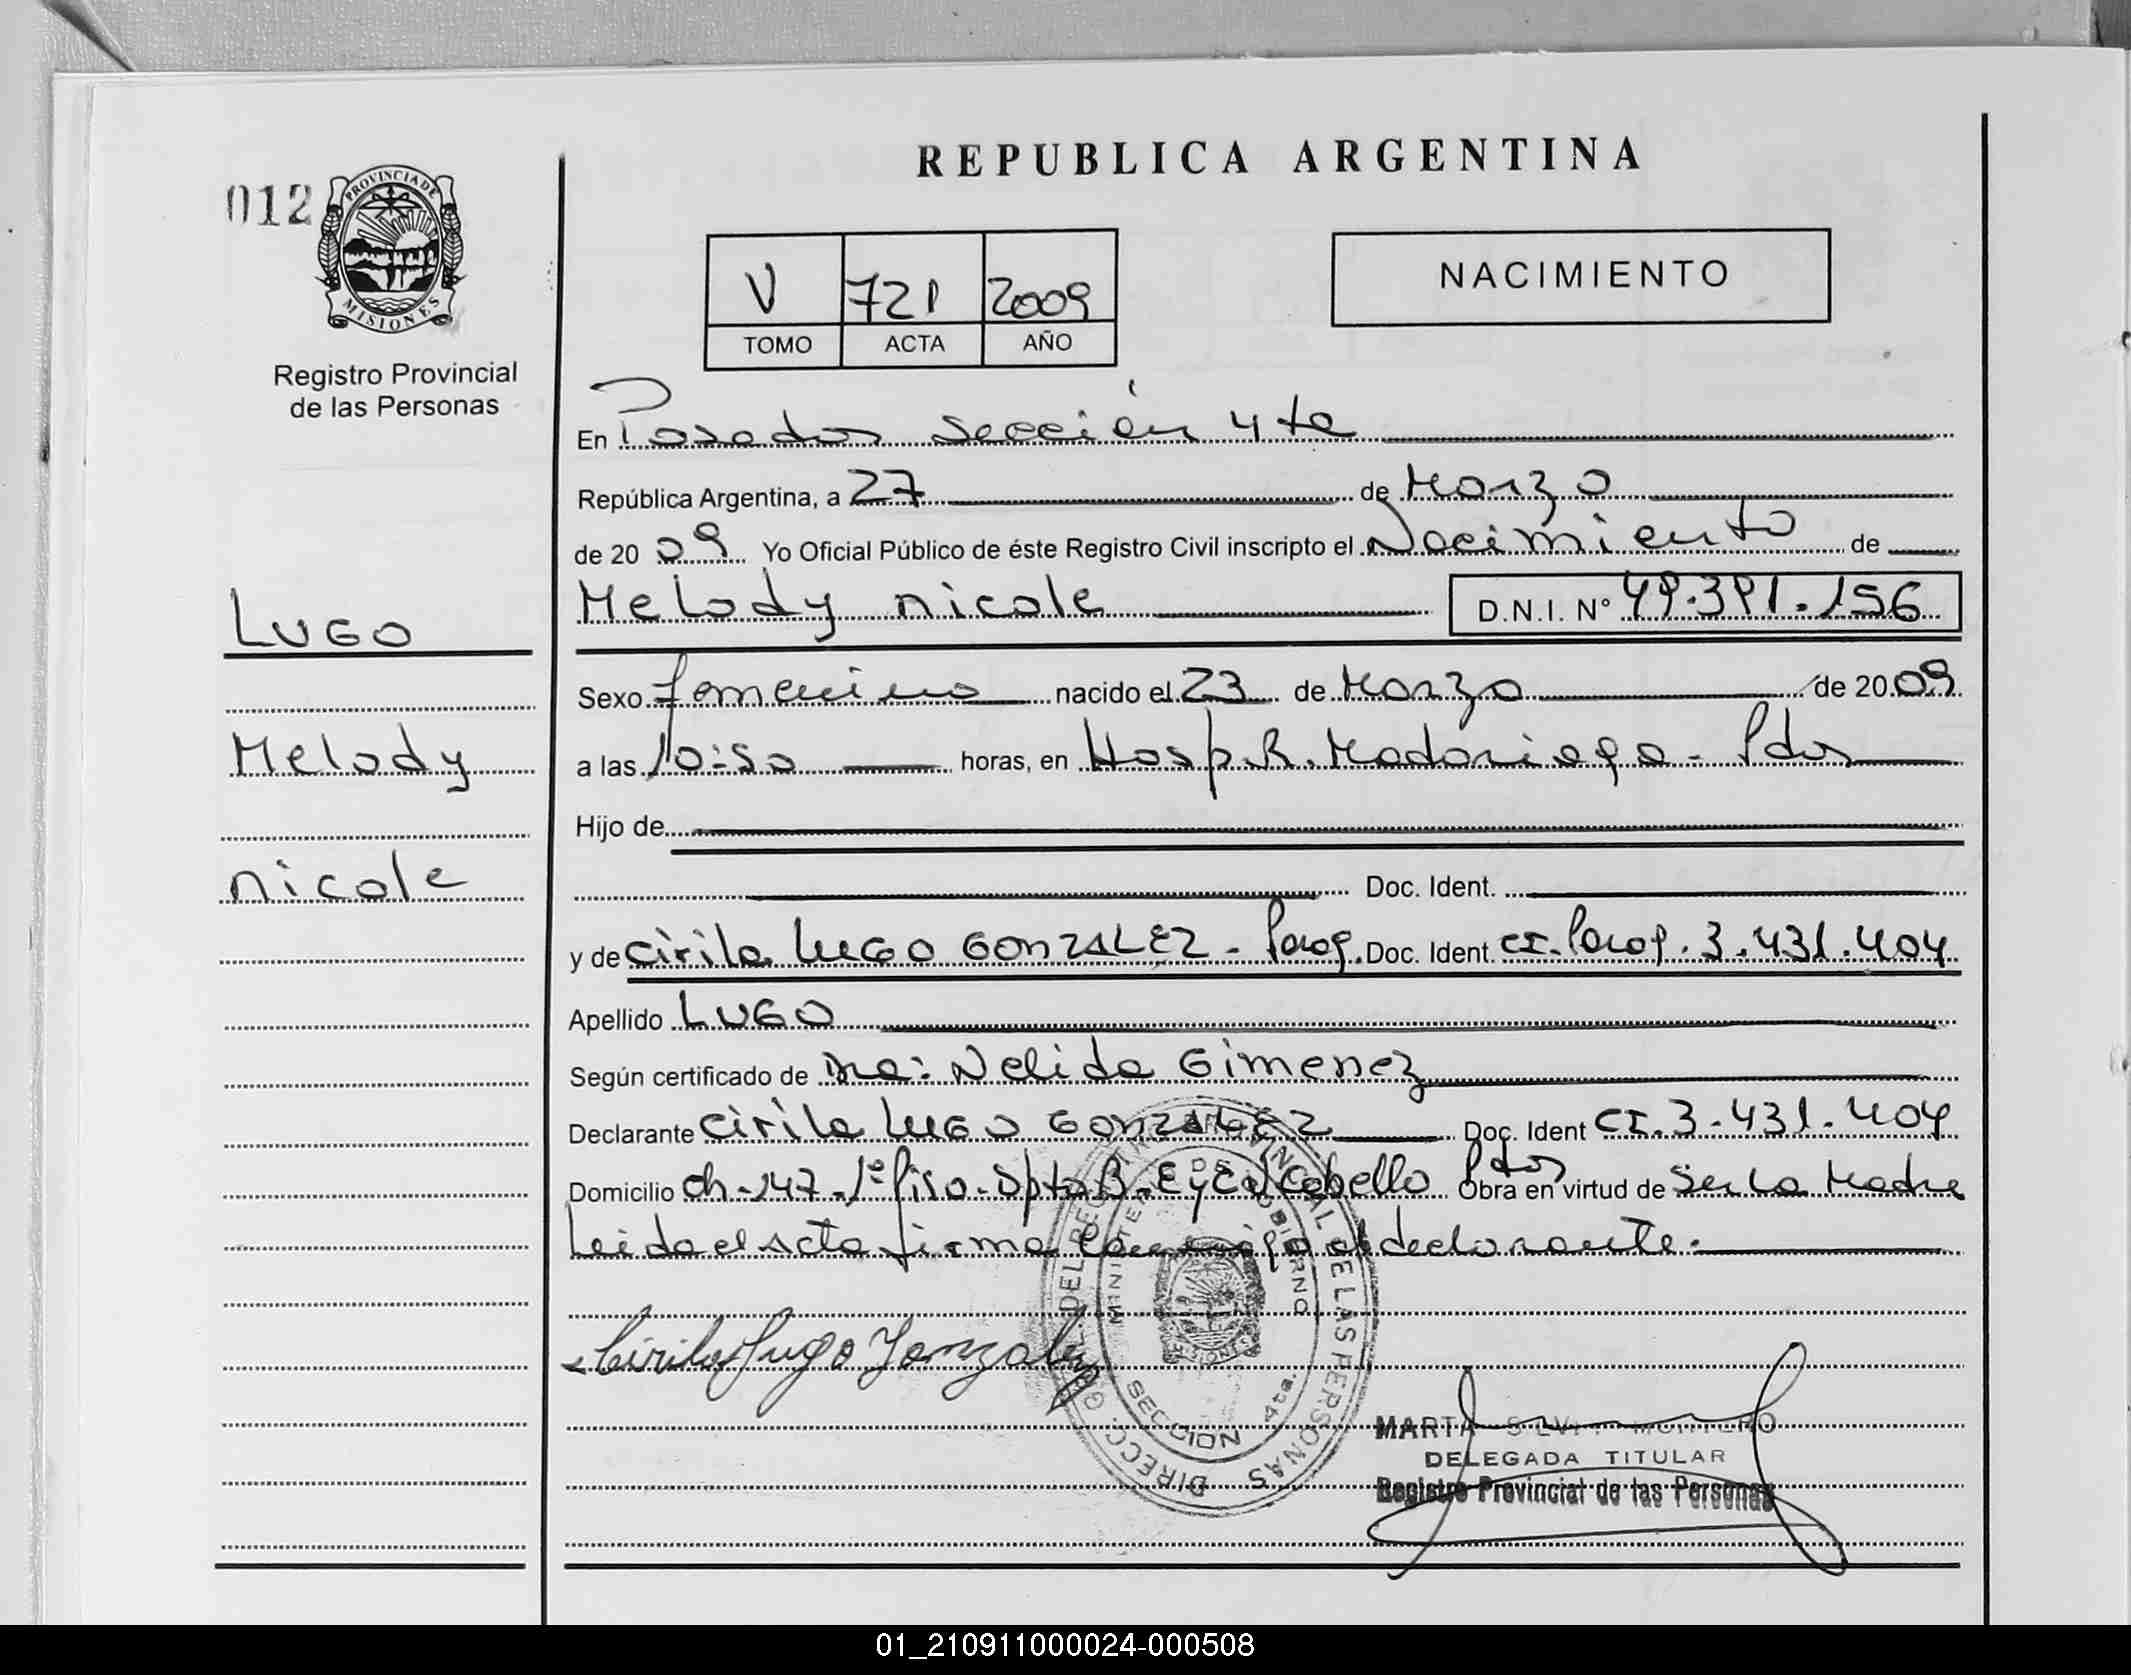 REPUBLICA ARGENTINA
012
PROVINCIA DE
MISIONES
Registro Provincial
de las Personas
V 721 2009
TOMO ACTA AÑO
NACIMIENTO
En Posadas Sección 4ta
República Argentina, a 27 de Marzo
de 2009 Yo Oficial Público de éste Registro Civil inscripto el Nacimiento de
LUGO
Melody nicole D.N.I. Nº 49.391.156
Sexo femenino nacido el 23 de Marzo de 2009
Melody
a las 10:50 horas, en Hosp. R. Madariaga - Pdas
Hijo de
nicole
Doc. Ident.
y de Cirila LUGO GONZALEZ - Parag. Doc. Ident. CI. Parag. 3.431.404
Apellido LUGO
Según certificado de Nelida Gimenez
Declarante Cirila LUGO GONZALEZ Doc. Ident CI. 3.431.404
Domicilio Ch. 147 - 1º Piso - Dpto B - Cabello Pdas Obra en virtud de Ser la Madre
Leida el Acta firma conmigo el declarante.
Cirila Lugo Gonzalez
DIRECC. GRAL. DEL REGISTRO PROVINCIAL DE LAS PERSONAS
MINISTERIO DE GOBIERNO
MISIONES
SECCION 4ta.
MARTA
DELEGADA TITULAR
Registro Provincial de las Personas
01_210911000024-000508